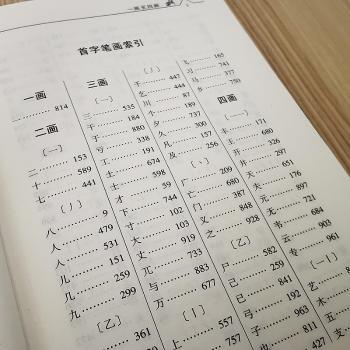 首字笔画索引
一画
一 …… 814
二画
〔一〕
二 …… 153
十 …… 589
七 …… 441
〔丿〕
八 …… 9
人 …… 479
入 …… 531
儿 …… 151
几 …… 259
九 …… 299
〔乙〕
361
三画
〔一〕
三 …… 535
干 …… 184
于 …… 880
亏 …… 338
工 …… 191
土 …… 674
士 …… 598
才 …… 59
下 …… 744
寸 …… 102
大 …… 103
丈 …… 919
兀 …… 733
与 …… 883
万 …… 677
〔丨〕
上 …… 557
757
〔丿〕
千 …… 447
乞 …… 444
川 …… 87
个 …… 189
夕 …… 737
久 …… 300
凡 …… 157
及 …… 256
〔丶〕
广 …… 209
亡 …… 680
门 …… 387
义 …… 848
之 …… 928
〔乙〕
尸 …… 582
己 …… 259
已 …… 841
弓 …… 192
子 …… 963
也 …… 811
飞 …… 165
习 …… 741
马 …… 377
乡 …… 750
四画
〔一〕
丰 …… 171
王 …… 680
开 …… 326
井 …… 297
天 …… 651
夫 …… 176
元 …… 897
无 …… 721
韦 …… 684
云 …… 903
专 …… 961
艺
木
五